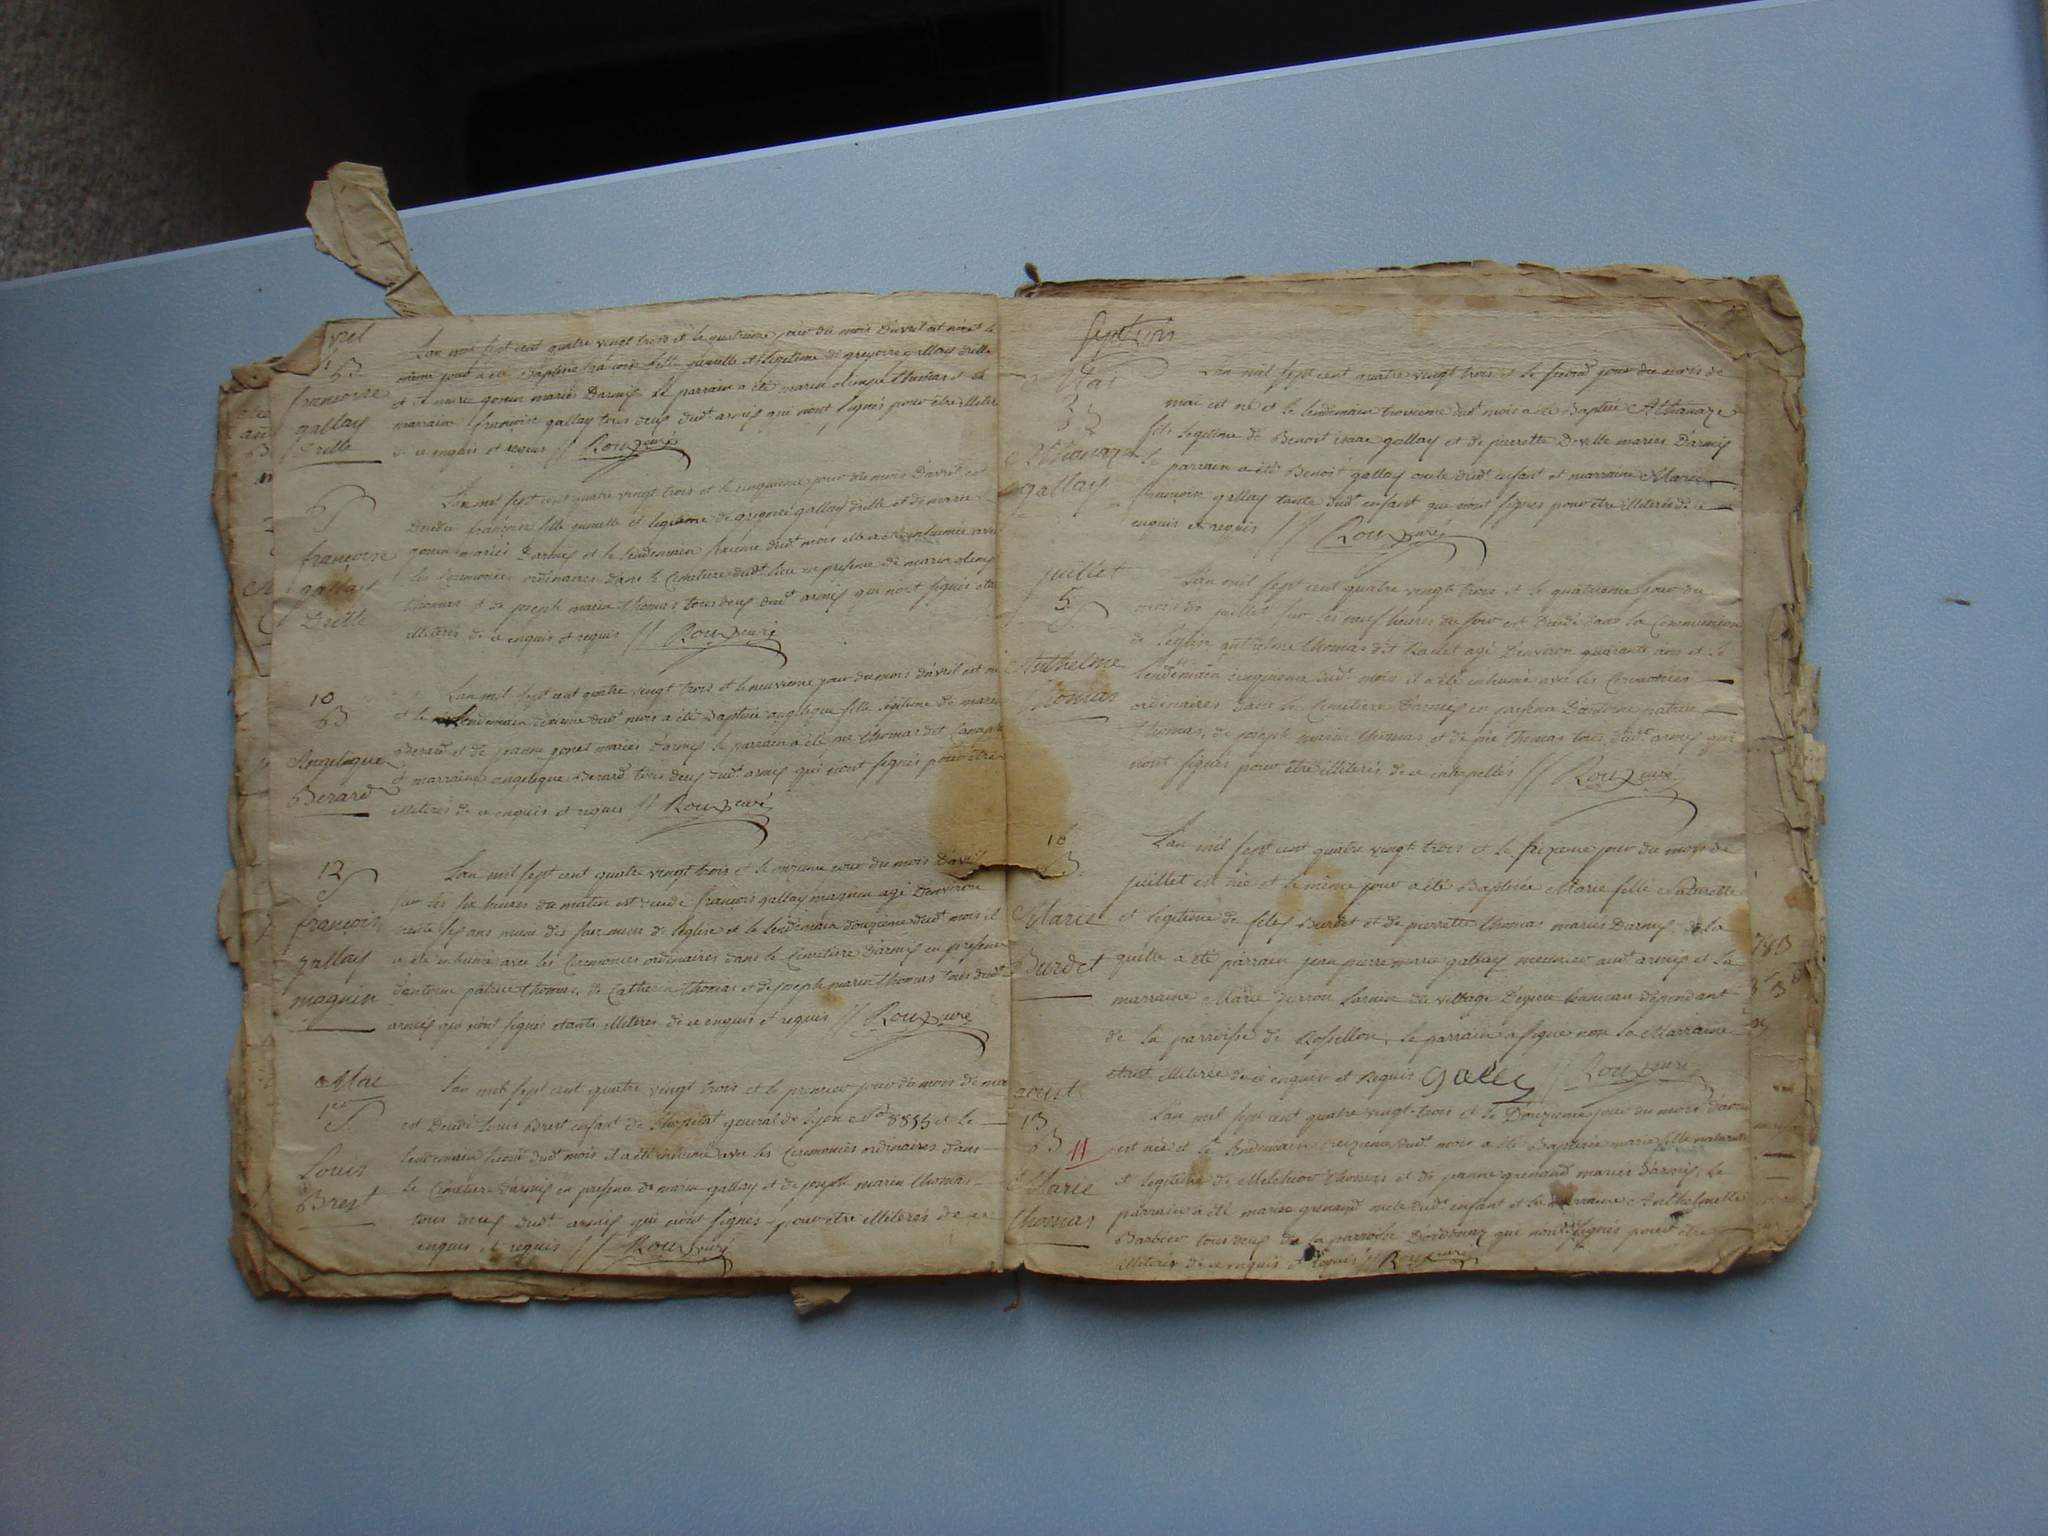 vril
4
B
francoise
gallay
Drille
L'an mil sept cent quatre vingt trois et le quatrieme jour du mois D'avril est née et le
même jour a été Baptisée francoise fille jumelle et legitime de gregoire gallay drille
et de marie gonin mariés Darmis le parrain a été marin olimpe thomas et la
marraine francoise gallay tous deux dudt armis qui n'ont signés pour être illiteres
de ce enquis et requis // Roux curé
5
S
francoise
gallay
Drille
L'an mil sept cent quatre vingt trois et le cinquieme jour du mois D'avril est
Decedée françoise fille jumelle et legitime de gregoire gallay drille et de marie
gonin mariés Darmis et le lendemain sixieme dudt mois elle a été inhumée avec
les ceremonies ordinaires dans le Cimetiere dudt lieu en presence de marin olimpe
thomas et de joseph marin thomas tous deux dudt armis qui n'ont signés etant
illiterés de ce enquis et requis // Roux curé
10
B
Angelique
Berard
L'an mil sept cent quatre vingt trois et le neuvieme jour du mois d'avril est née
et le lendemain dixieme dudt mois a été Baptisée angelique fille legitime de marin
Berard et de jeanne gonet mariés D'armis le parrain a été thomas dit
et marraine angelique Berard tous deux dudt armis qui n'ont signés pour être
illiterés de ce enquis et requis // Roux curé
12
S
francois
gallay
magnin
L'an mil sept cent quatre vingt trois et le onzieme jour du mois D'avril
sur les six heures du matin est decedé françois gallay magnin agé D'environ
trente six ans muni des sacremens de l'eglise et le lendemain douzieme dudt mois il
a été inhumé avec les Ceremonies ordinaires dans le Cimetiere D'armis en presence
d'antoine patrice thomas, de Catherin thomas et de joseph marin thomas tous dudt
armis qui n'ont signés etants illiteres de ce enquis et requis // Roux curé
Mai
1er S
Louis
Brest
L'an mil sept cent quatre vingt trois et le premier jour du mois de mai
est Decedé Louis Brest enfant de l'hopital general de Lyon No 8855 et le
lendemain second dudt mois il a été inhumé avec les Ceremonies ordinaires dans
le Cimetiere D'armis en presence de marin gallay et de joseph marin thomas
tous deux dudt armis qui n'ont signés pour etre illiterés de ce
enquis et requis // Roux curé
Sept
Mai
3
B
Athanaze
gallay
L'an mil sept cent quatre vingt trois et le second jour du mois de
mai est né et le lendemain troisieme dudt mois a été Baptisé Athanaze
fils legitime de Benoit isaac gallay et de pierrette Deville mariés D'armis
le parrain a été Benoit gallay oncle dudt enfant et marraine Marie
françoise gallay tante dudt enfant qui n'ont signés pour être illiterés de ce
enquis et requis // Roux curé
juillet
5
S
Anthelme
thomas
L'an mil sept cent quatre vingt trois et le quatrieme jour du
mois de juillet sur les neuf heures du soir est Decedé dans la Communion
de l'eglise anthelme thomas dit agé D'environ quarante ans et le
lendemain cinquieme dudt mois il a été inhumé avec les Ceremonies
ordinaires dans le Cimetiere D'armis en presence D'antoine patrice
thomas, de joseph marin thomas et de pre thomas tous dudt armis qui
n'ont signés pour être illiterés de ce interpellés // Roux curé
16
B
Marie
Burdet
L'an mil sept cent quatre vingt trois et le seizieme jour du mois de
juillet est née et le même jour a été Baptisée Marie fille Naturelle
et legitime de felex Burdet et de pierrette thomas mariés Darmis. de la
quelle a été parrain jean pierre marie gallay meunier audt armis et la
marraine Marie du village hameau dépendant
de la parroisse de Rossillon, le parrain a signe non la Marraine
etant illiterée de ce enquise et Requis Galley // Roux curé
aoust
13
B 11
Marie
thomas
L'an mil sept cent quatre vingt-trois et le Douzieme jour du mois D'aoust
est née et le lendemain treizieme dudt mois a été Baptisée marie fille naturelle
et legitime de Melchior thomas et de jeanne grinand mariés D'armis, le
parrain a été marin grinand oncle dudt enfant et la marraine Anthelmette
Barbier tous deux de la parroisse D'ordonnaz qui n'ont signés pour être
illiterés de ce enquis et requis // Roux curé